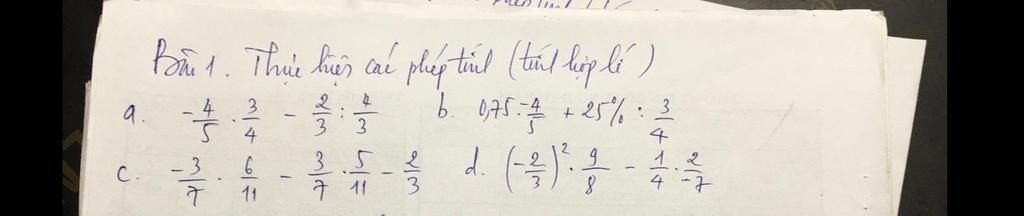 Bài 1. Thực hiện các phép tính (tính hợp lí)
a. -4/5 . 3/4 - 2/3 : 4/3 b. 0,75 . -4/5 + 25% : 3/4
c. -3/7 . 6/11 - 3/7 . 5/11 - 2/3 d. (-2/3)² . 9/8 - 1/4 . 2/-7